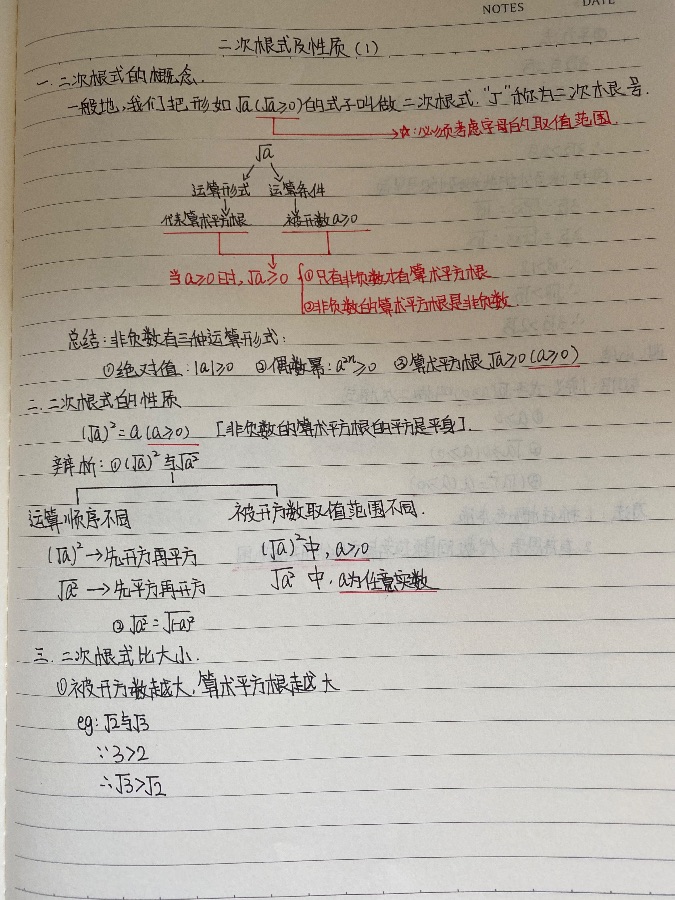 NOTES DATE
二次根式及性质（1）
一.二次根式的概念.
一般地,我们把形如√a(√a≥0)的式子叫做二次根式."√"称为二次根号.
☆:必须考虑字母的取值范围.
√a
运算形式 运算条件
代表算术平方根 被开数a≥0
当a≥0时,√a≥0 {①只有非负数才有算术平方根
②非负数的算术平方根是非负数
总结:非负数有三种运算形式:
①绝对值:|a|≥0 ②偶数幂:a²ⁿ≥0 ③算术平方根√a≥0(a≥0)
二.二次根式的性质
(√a)²=a(a≥0) [非负数的算术平方根的平方是平身].
辩析:①(√a)²与√a²
运算顺序不同 被开方数取值范围不同.
(√a)²→先开方再平方 (√a)²中,a≥0
√a²→先平方再开方 √a²中,a为任意实数
②√a²=√(-a)²
三.二次根式比大小.
①被开方数越大,算术平方根越大
eg:√2与√3
∵3>2
∴√3>√2